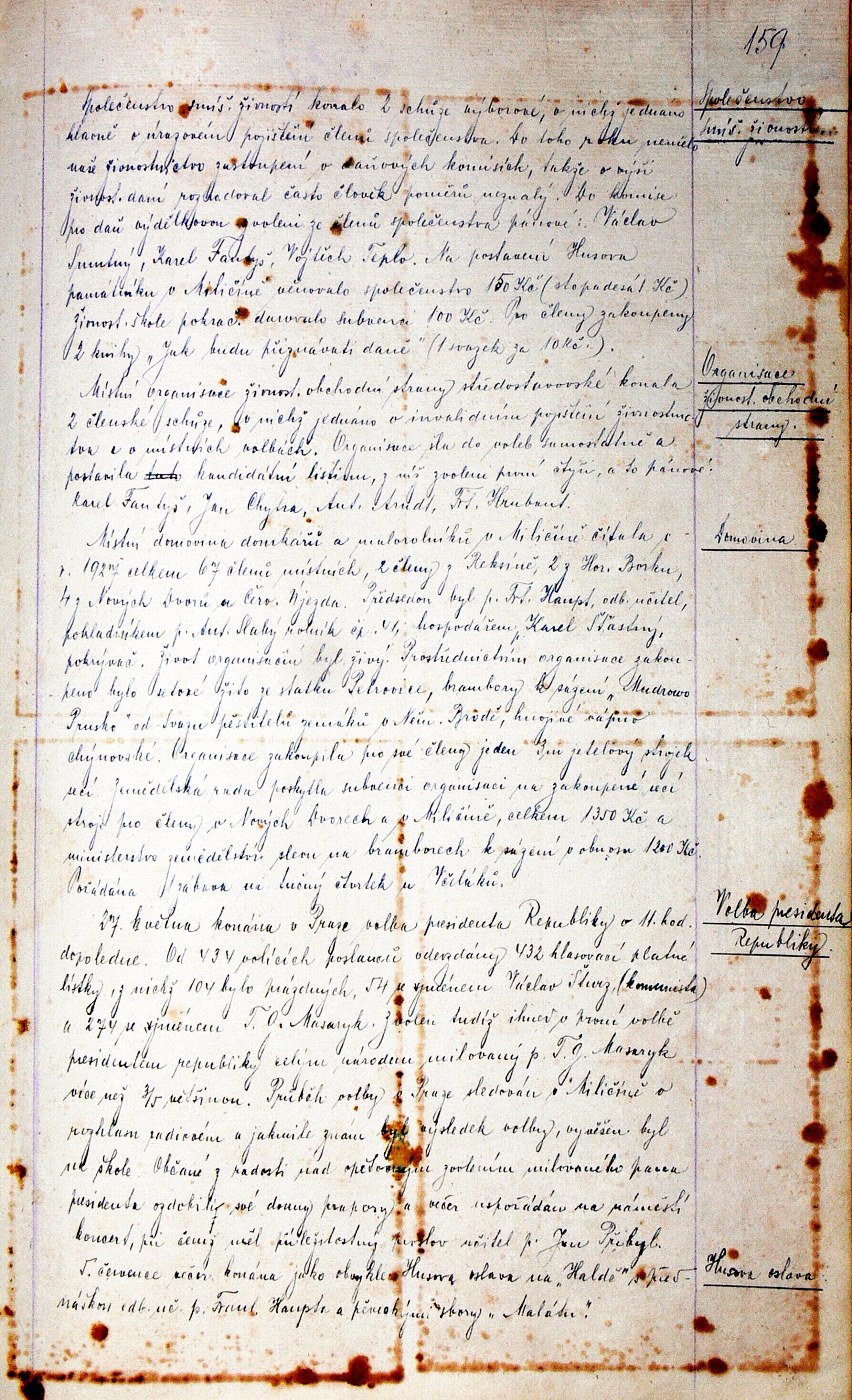 159
Společenstvo smíš. živností konalo 2 schůze výborové, v nichž jednáno
Společenstvo
hlavně o úrazovém pojištění členů společenstva. Do toho roku nemělo
smíš. živností.
naše živnostnictvo zastoupení v daňových komisích, takže o výši
živnost. daní rozhodoval často člověk poměrů neznalý. Do komise
pro daň výdělkovou zvoleni ze členů společenstva pánové: Václav
Smutný, Karel Fantyš, Vojtěch Teplo. Na postavení Husova
památníku v Miličíně věnovalo společenstvo 150 Kč (stopadesát Kč)
živnost. škole pokrač. darovalo subvenci 100 Kč. Pro členy zakoupeny
2 knihy „Jak budu přiznávati daně" (1 svazek za 10 Kč.).
Organisace
Místní organisace živnost. obchodní strany středostavovské konala
živnost. obchodní
2 členské schůze, v nichž jednáno o invalidním pojištění živnostnic-
strany.
tva a o místních volbách. Organisace šla do voleb samostatně a
postavila kandidátní listinu, z níž zvoleni první čtyři, a to pánové:
Karel Fantyš, Jan Chytra, Ant. Arndt, Frt. Hrubant.
Domovina
Místní domovina domkářů a malorolníků v Miličíně čítala v
r. 1927 celkem 67 členů místních, 2 členy z Reksíně, 2 z Hor. Borku,
4 z Nových Dvorů a Červ. Újezda. Předsedou byl p. Frt. Haupt, odb. učitel,
pokladníkem p. Ant. Slabý rolník čp. 41, hospodářem Karel Šťastný,
pokrývač. Život organisační byl živý. Prostřednictvím organisace zakou-
peno bylo seťové žito ze statku Petrovice, brambory k sázení „Mudrowo
Prusko" od Svazu pěstitelů zemáků v Něm. Brodě, hnojivé vápno
chýnovské. Organisace zakoupila pro své členy jeden 3 m jetelový strojek
secí. Zemědělská rada poskytla subvenci organisaci na zakoupené secí
stroje pro členy v Nových Dvorech a v Miličíně, celkem 1350 Kč a
ministerstvo zemědělství slevu na bramborech k sázení v obnosu 1200 Kč.
Pořádána zábava na tučný čtvrtek u Včeláků.
Volba presidenta
27. května konána v Praze volba presidenta Republiky v 11. hod.
Republiky.
dopoledne. Od 434 volících poslanců odevzdány 432 hlasovací platné
lístky, z nichž 104 bylo prázdných, 54 se jménem Václav Šturz, (komunista)
a 274 se jménem T. G. Masaryk. Zvolen tudíž ihned v první volbě
presidentem republiky celým národem milovaný p. T. G. Masaryk
více než 3/5 většinou. Průběh volby v Praze sledován v Miličíně v
rozhlasu radiovém a jakmile znám byl výsledek volby, vyvěšen byl
na škole. Občané z radosti nad opětovným zvolením milovaného pana
presidenta ozdobili své domy prapory a večer uspořádán na náměstí
koncert, při čemž měl příležitostný proslov učitel p. Jan Přibyl.
Husova oslava
5. července večer konána jako obvykle Husova oslava na „Haldě" s před-
náškou odb. uč. p. Frant. Haupta a pěveckými sbory „Malátu".